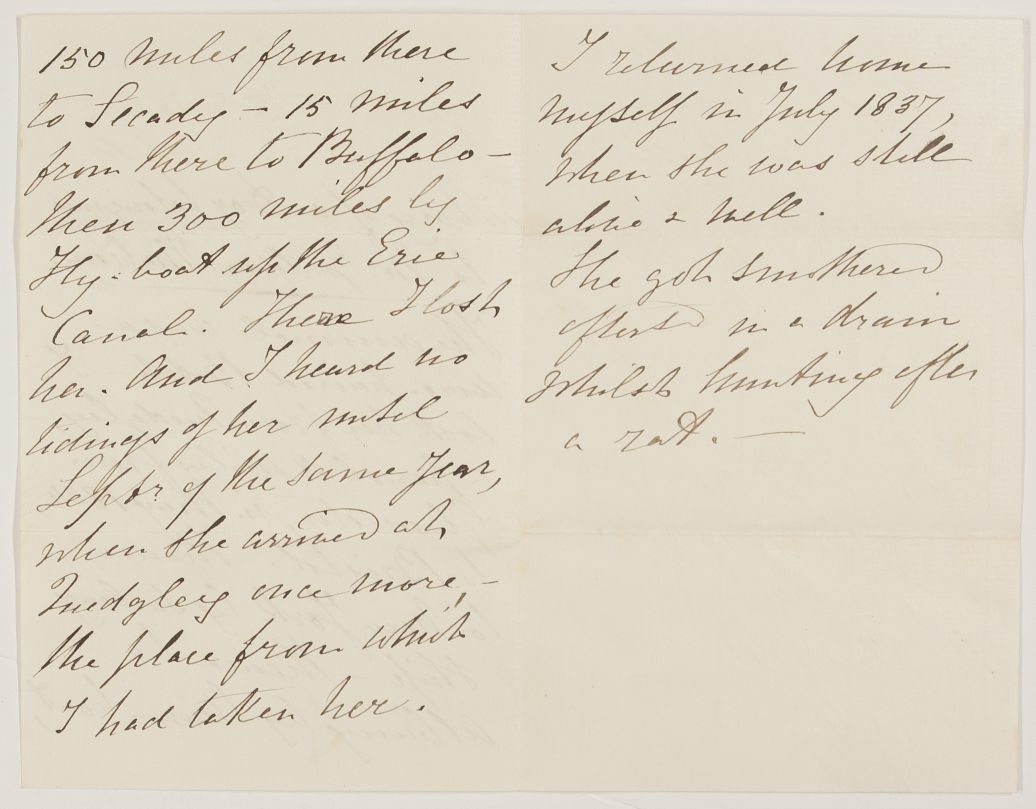 150 miles from there
to Sccady – 15 miles
from there to Buffalo –
then 300 miles by
Fly-boat up the Erie
Canal. There I lost
her. And I heard no
tidings of her until
Septr. of the same year,
when she arrived at
once more, –
the place from which
I had taken her.
I returned home
myself in July 1837,
when she was still
alive & well.
She got smothered
afterds in a drain
whilst hunting after
a rat. —